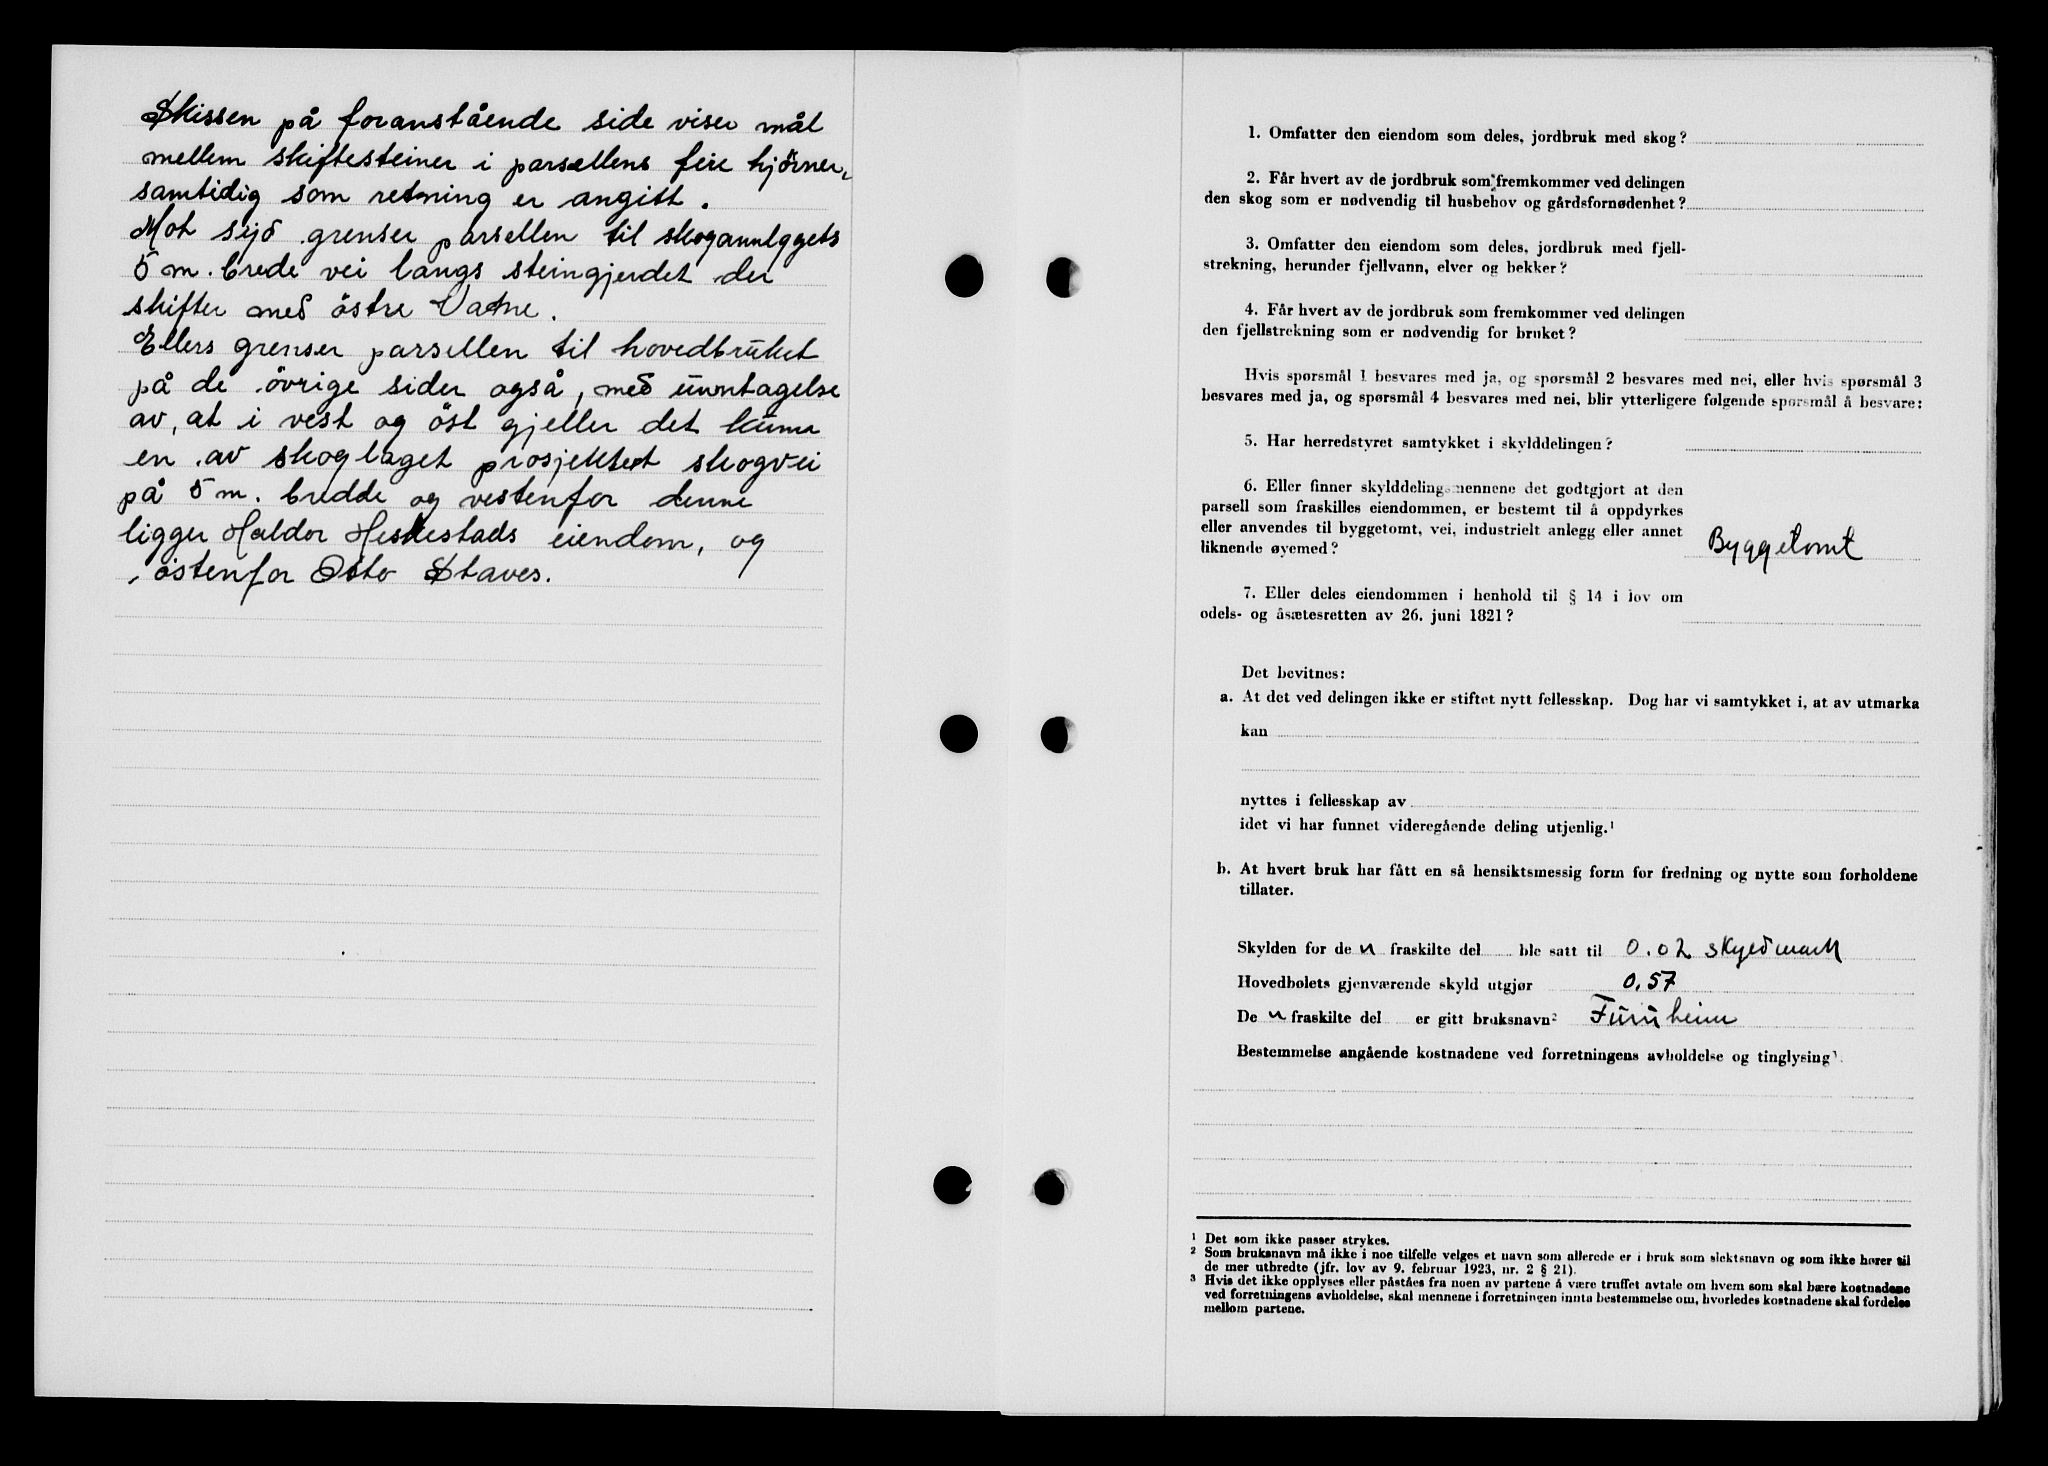 Skissen på foranstående side viser mål
mellem skiftesteiner i parsellens feire hjörner,
samtidig som retning er angitt.
Mot syd grenser parsellen til skogannlggets
5 m. brede vei langs steingjerdet der
skifter med östre Vatne.
Ellers grenser parsellen til hovedbruket
på de övrige sider også, med unntagelse
av, at i vest og öst gjeller det kunn
en av skoglaget prosjektert skogvei
på 5 m. bredde og vestenfor denne
ligger Haldor Heskestads eiendom, og
östenfor Otto Staves.
1. Omfatter den eiendom som deles, jordbruk med skog?
2. Får hvert av de jordbruk som fremkommer ved delingen
den skog som er nødvendig til husbehov og gårdsfornødenhet?
3. Omfatter den eiendom som deles, jordbruk med fjell-
strekning, herunder fjellvann, elver og bekker?
4. Får hvert av de jordbruk som fremkommer ved delingen
den fjellstrekning som er nødvendig for bruket?
Hvis spørsmål 1 besvares med ja, og spørsmål 2 besvares med nei, eller hvis spørsmål 3
besvares med ja, og spørsmål 4 besvares med nei, blir ytterligere følgende spørsmål å besvare:
5. Har herredstyret samtykket i skylddelingen?
6. Eller finner skylddelingsmennene det godtgjort at den
parsell som fraskilles eiendommen, er bestemt til å oppdyrkes
eller anvendes til byggetomt, vei, industrielt anlegg eller annet
liknende øyemed? Byggetomt
7. Eller deles eiendommen i henhold til § 14 i lov om
odels- og åsætesretten av 26. juni 1821?
Det bevitnes:
a. At det ved delingen ikke er stiftet nytt fellesskap. Dog har vi samtykket i, at av utmarka
kan
nyttes i fellesskap av
idet vi har funnet videregående deling utjenlig.¹
b. At hvert bruk har fått en så hensiktsmessig form for fredning og nytte som forholdene
tillater.
Skylden for de n fraskilte del ble satt til 0.02 skyldmark
Hovedbølets gjenværende skyld utgjør 0,57
De n fraskilte del er gitt bruksnavn² Furuheim
Bestemmelse angående kostnadene ved forretningens avholdelse og tinglysing³.
¹ Det som ikke passer strykes.
² Som bruksnavn må ikke i noe tilfelle velges et navn som allerede er i bruk som slektsnavn og som ikke hører til
de mer utbredte (jfr. lov av 9. februar 1923, nr. 2 § 21).
³ Hvis det ikke opplyses eller påståes fra noen av partene å være truffet avtale om hvem som skal bære kostnadene
ved forretningens avholdelse, skal mennene i forretningen innta bestemmelse om, hvorledes kostnadene skal fordeles
mellom partene.